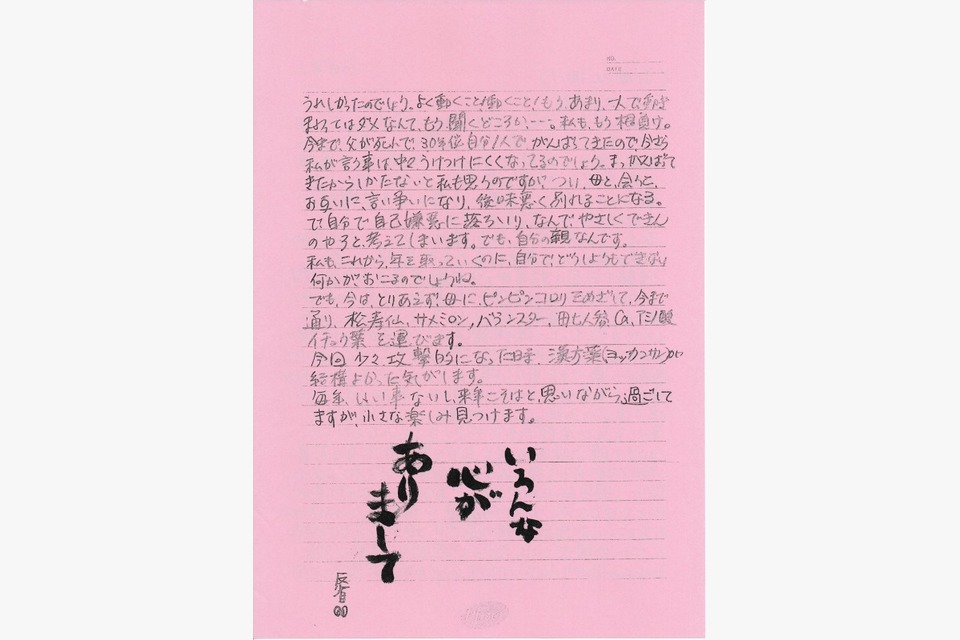 NO.
DATE
うれしかったのでしょう。よく動くこと!動くこと!もう、あまり、一人で動き
まわってはダメなんて、もう聞くどころか、…。私も、もう根負け。
今まで、父が死んで、30年位自分1人で がんばってきたので、今さら
私が言う事は、中々うけつけにくくなってるのでしょう。まっ、がんばって
きたからしかたないと私も思うのですが、つい、母と、会うと、
お互いに、言い争いになり、後味悪く別れることになる。
で、自分で自己嫌悪に落ちいり、なんで、やさしくできん
のやろと、考えてしまいます。でも、自分の親なんです。
私も、これから、年を取っていくのに、自分で、どうしようもできない
何かが、おこるのでしょうね。
でも、今は、とりあえず、母に、ピンピンコロリをめざして、今まで
通り、松寿仙、サメミロン、バランスター、田七人参、Ca、アミノ酸
イチョウ葉を運びます。
今回少々攻撃的になった時、漢方薬(ヨッカンサン)が
結構よかった気がします。
毎年、いい事ないし、来年こそはと、思いながら、過ごして
ますが、小さな楽しみ見つけます。
いろんな
心が
あり
まして